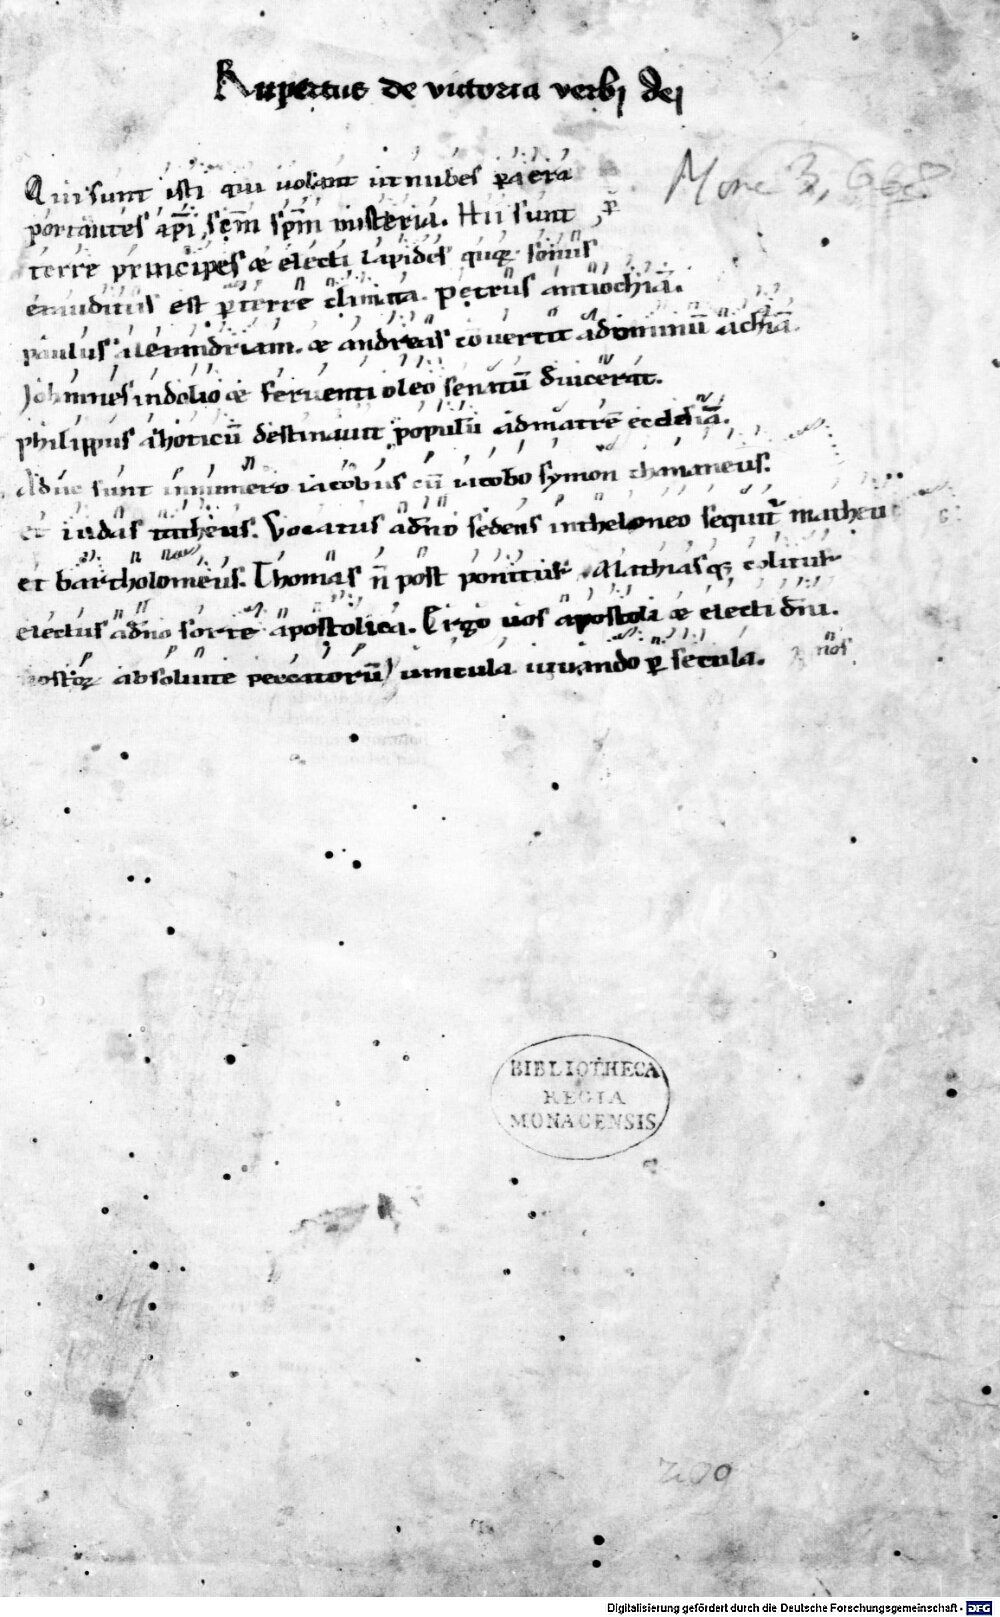 Rupertus de victoria verbi dei
Qui sunt isti qui uolant ut nubes p̄ aera
portantes ap̄i sc̄m sp̄m misteria. Hii sunt
terre principes æ electi lapides quoꝝ sonus
exauditus est p̄ terre climata. Petrus antiochiā.
paulus alexandriam. æ andreas cōuertit ad dominū achiā.
Johannes in dolio æ feruenti oleo senatū deuicerat.
philippus ad horicū destinauit populū ad matrē ecclesiā.
Adhuc sunt in numero iacobus cū iacobo symon chananeus.
et iudas tatheus. Vocatus a dn̄o sedens in theloneo sequit̄ matheus
et bartholomeus. Thomas n̄ post ponitur. Mathias qꝫ colitur
electus a dn̄o sorte apostolica. Ergo uos apostoli æ electi dei.
nostroꝝ absoluite peccatorū uincula iuuando p̄ secula. nos
BIBLIOTHECA
REGIA
MONACENSIS
200
Digitalisierung gefördert durch die Deutsche Forschungsgemeinschaft - DFG